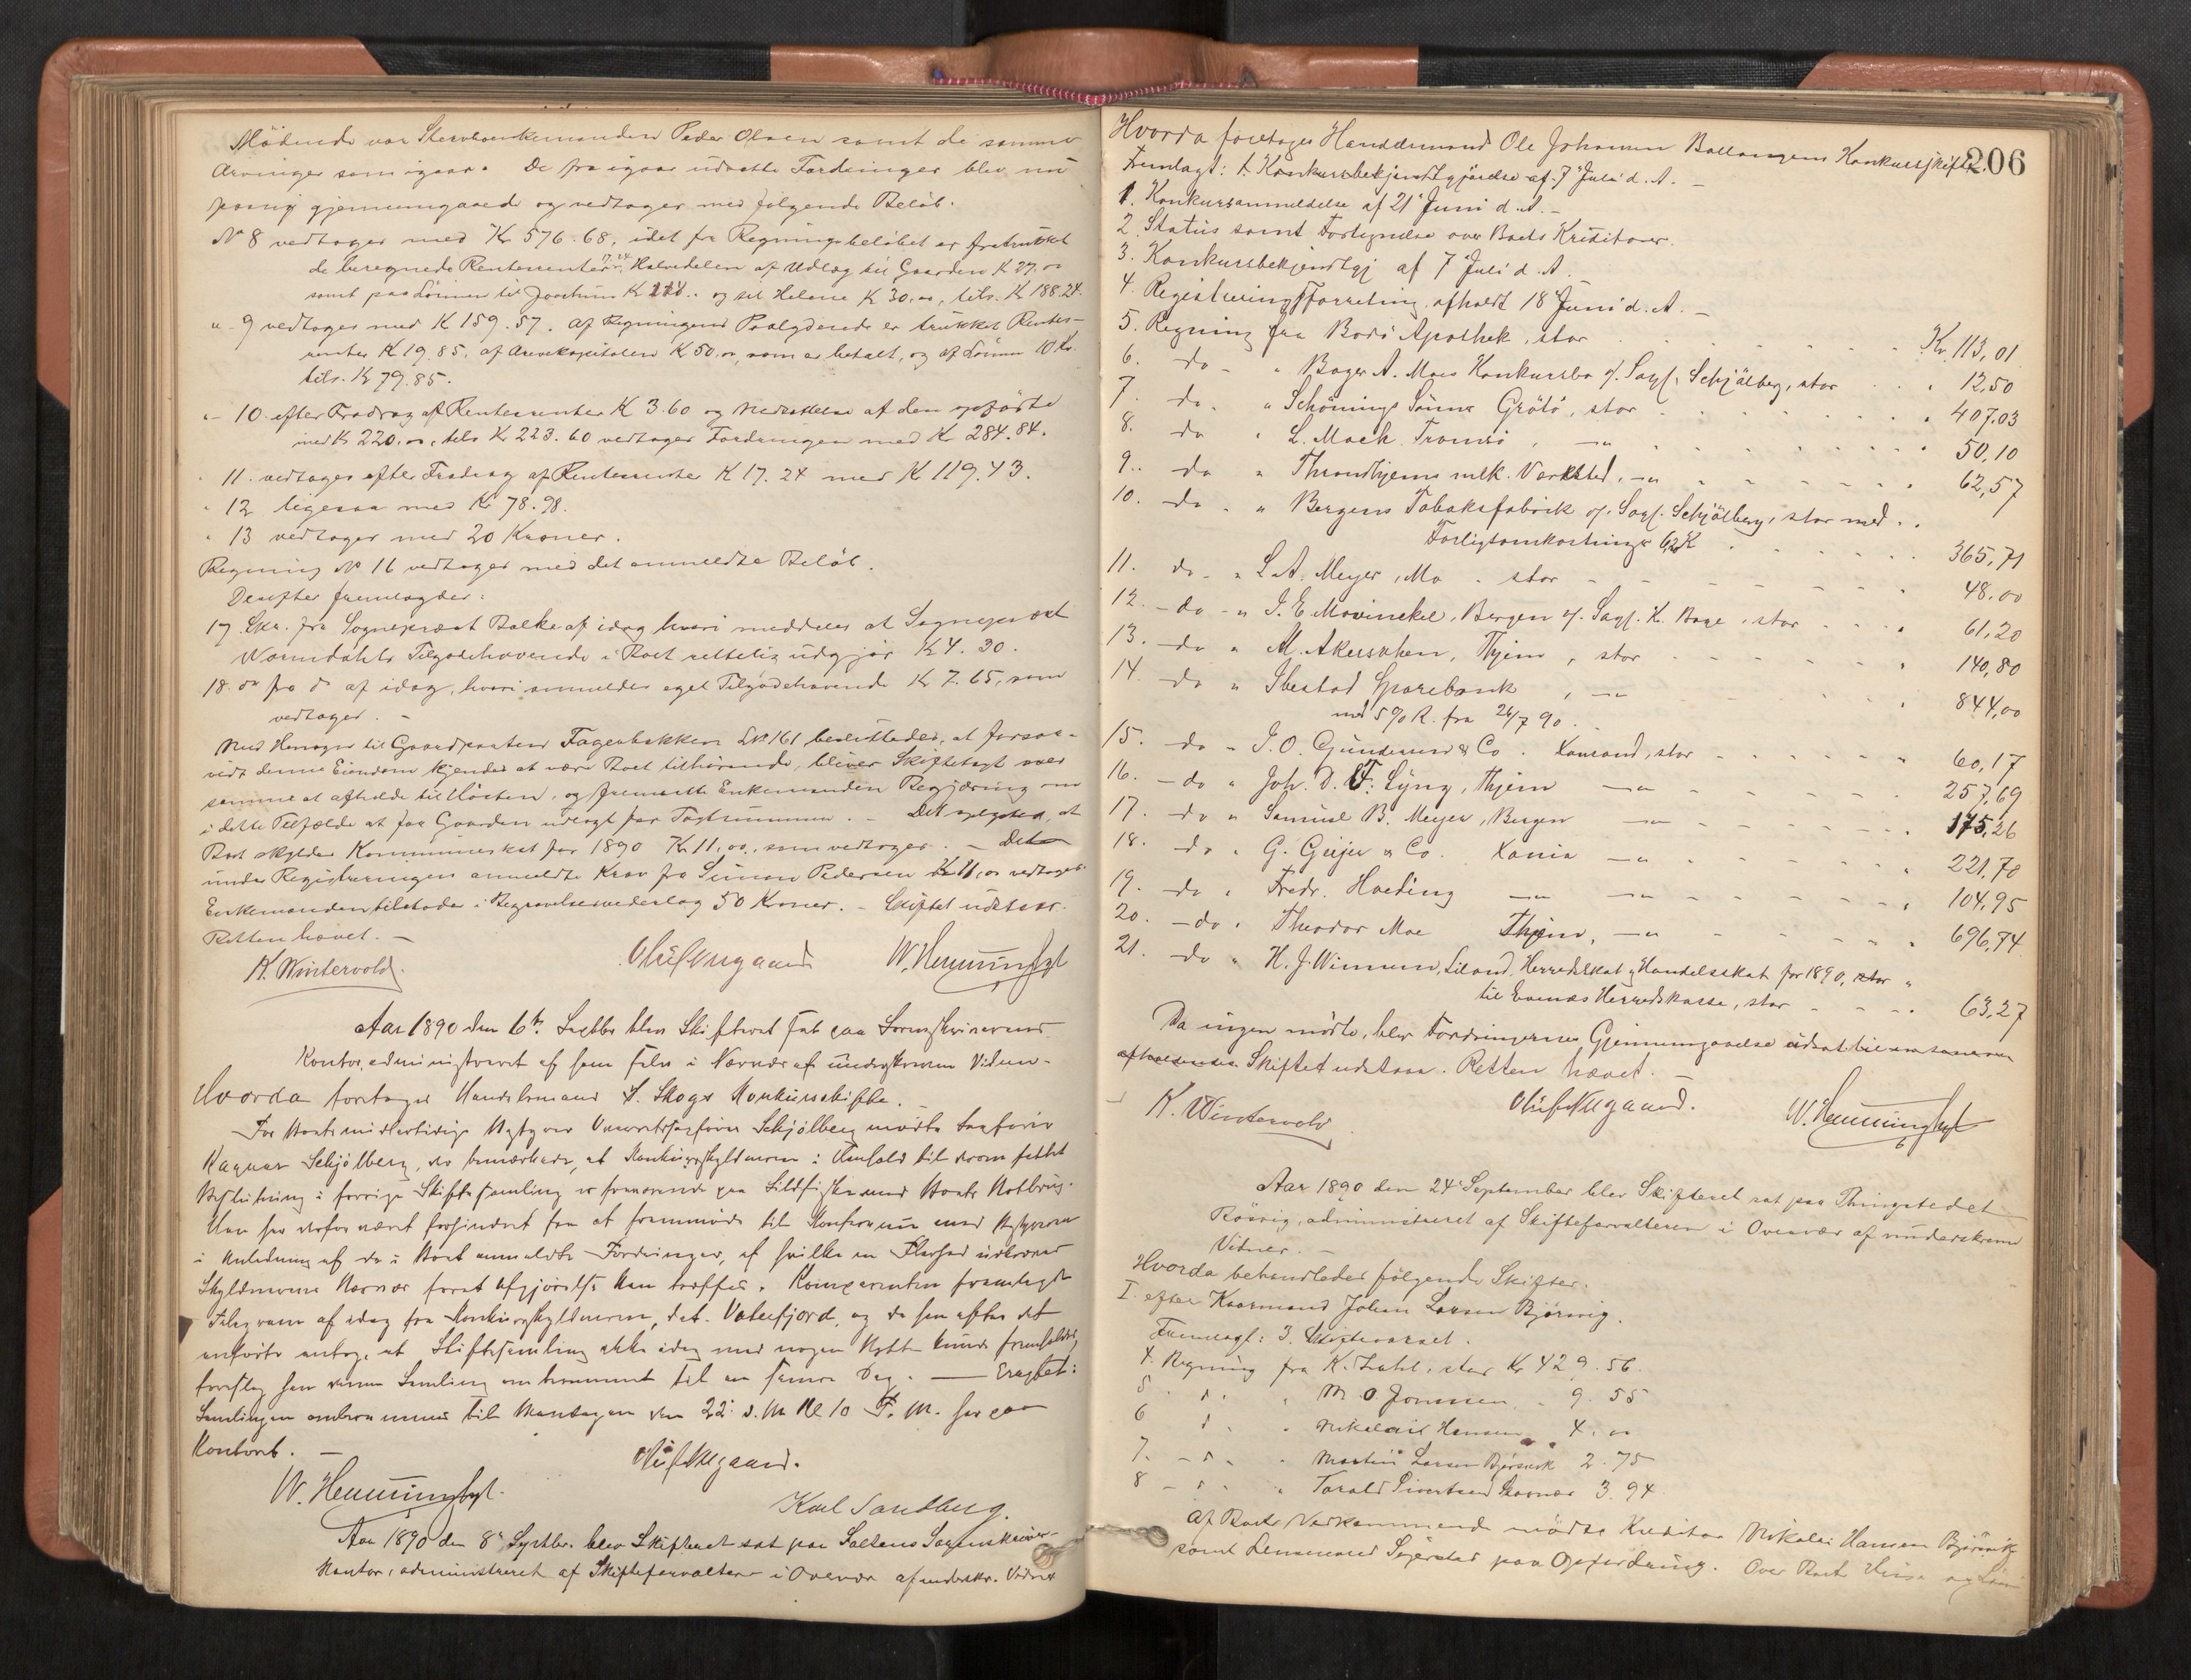 Mödende var Stervboenkemanden Peder Olsen samt de samme
Arvinger som igaar. De fra igaar udsatte Fordringer blev nu
paany gjennemgaaed og vedtages med følgende Beløb.
No 8 vedtages med Kr 576.68, idet fra Regningsbeløbet er fratrukket
de beregnede Rentesrenter 17.24 Halvdelen af Udlæg til Gaarden K 27.00
samt paa Lönnen til Joachim K og til Helene K 30.00, tils. Kr 188.24.
" 9 vedtages med K 159.57. af Regningens Paalydende er trukket Rentes-
renter K 19.85, af Arvekapitalen K 50.00, som er betalt, og af Lönnen 10 Kr.
tils. Kr 79.85.
" 10 efter Fradrag af Rentesrenter K 3.60 og Nedsættelse af den opførte
med Kr 220.00, tils Kr 223.60 vedtages Fordringen med Kr 284.84.
" 11 vedtages efter Fradrag af Rentesrenter K 17.24 med K 119.43.
" 12 ligesaa med Kr 78.98.
" 13 vedtages med 20 Kroner.
Regning No 16 vedtages med det anmeldte Beløb.
Derefter fremlagdes:
17. Skr. fra Sogneprest Balke af idag hvori meddeles at Sogneprest
Normdahls Tilgodehavende i Boet rettelig udgjör K 4.30.
18. do fra do af idag, hvori anmeldes eget Tilgodehavende Kr 7.65, som
vedtages. -
Med Hensyn til Gaardparten Fagerbakken LNo 161 besluttedes, at forsaa-
vidt denne Eiendom kjendes at være Boet tilhørende, bliver Skiftetagt over
samme at afholde til Hösten, og fremsatte Enkemanden Begjæring om
i dette Tilfælde at faa Gaarden udlagt for Taxtsummen. - Det oplystes, at
Boet skylder Kommuneskat for 1890 Kr 11,00, som vedtages. - Det
under Registreringen anmeldte Krav fra Simon Pedersen Kr 11,00 vedtages.
Enkemanden tilstodes i Begravelsesvederlag 50 Kroner. - Skiftet udstaar.
Retten hævet. -
K. Wintervold.
W. Henningsen
Aar 1890 den 6te Septbr blev Skifteret sat paa Sorenskriverens
Kontor, administreret af ham selv i Nærvær af underskrevne Vidner.
Hvorda foretoges Handelsmand S. Skogs Konkursskifte.
For Boets midlertidige Bestyrer Overretssagfører Schjölberg mødte Sagfører
Ragnar Schjölberg, der bemærkede, at Konkursskyldneren i Henhold til den fattet
Beslutning i forrige Skiftesamling er fraværende paa Sildfiske med Boets Notbrug.
Han har derfor været forhindret fra at fremmøde til Konference med Bestyreren
i Anledning af de i Boet anmeldte Fordringer, af hvilke en Flerhed udkræver
Skyldnerens Nærvær forat Afgjørelse kan træffes. Komparenten fremlagde
Telegram af idag fra Konkursskyldneren, dat. Vatnfjord, og da han efter det
anførte antog, at Skiftesamling ikke idag med nogen Nytte kunde fremholdes,
foreslog han denne Samling omberammet til en senere Dag. — Eragtet:
Samlingen omberammes til Mandagen den 22. d. M. Kl 10 F. M. her paa
Kontoret. -
W. Henningsen
Karl Sandberg.
Aar 1890 den 8de Septbr. blev Skifteret sat paa Saltens Sorenskriver-
Kontor, administreret af Skifteforvalteren i Overvær af underskr. Vidner
206
Hvorda foretages Handelsmand Ole Johansen Ballangens Konkursskifte.
Fremlagt: 1. Konkursbekjendtgjørelse af 7 Juli d. A. -
1. Konkursanmeldelse af 21 Juni d. A. -
2. Status samt Fortegnelse over Boets Kreditorer.
3. Konkursbekjendtgj af 7 Juli d. A.
4. Registreringsforretning afholdt 18 Juni d. A. -
5. Regning fra Bodö Apothek, stor Kr. 113,01
6. do " Bager A. Moes Konkursbo v/ Sagf. Schjölberg, stor " 12,50
7. do " Schönings Sönner Grötö, stor " 407.03
8. do " L. Mack Tromsö, —" " 50,10
9. do " Throndhjems mek. Værksted, —" " 62,57
10. do " Bergens Tobaksfabrik v/ Sagf. Schjölberg, stor med
Forligsomkostninger 6,20 K 365,71
11. do " L. A. Meyer, Mo, stor 48.00
12. do " J. E. Mowinckel, Bergen v/ Sagf. K. Bage, stor 61,20
13. do " M. Akersohen, Thjem, stor 140,80
14. do " Ibestad Sparebank, —" 844,00
med 5 % R. fra 26/7 90.
15. do " J. O. Gundersen & Co. Xansand, stor 60,17
16. do " Joh. D. F. Lyng, Thjem —" 257,69
17. do " Samuel B. Meyer, Bergen —" 175,26
18. do " G. Geijer & Co. Xania —" 221,70
19. do " Fredr. Harting —" —" 104,95
20. do " Theodor Moe Thjem, —" 696,74
21. do " H. J. Wimmen, Liland, Herredskat & Handelsskat for 1890, stor "
til Evenæs Herredskasse, stor 63,27
Da ingen mödte, blev Fordringernes Gjennemgaaelse udsat til
Skiftet udstaar. Retten hævet. -
K. Wintervold
W. Henningsen
Aar 1890 den 24 September blev Skifteret sat paa Thingstedet
Rösvig, administreret af Skifteforvalteren i Overvær af underskrevne
Vidner. -
Hvorda behandledes følgende Skifter:
I. efter Kaarmand Johan Larsen Bjørsvig.
Fremlagt: 3. Skiftevarsel.
4. Regning fra K. Zahl, stor Kr 429.56.
5 d. " M. O. Jonassen " 9.55
6 d. " Nikolai Hansen " 4.00
7. d. " Martin Larsen Bjørsvik 2.75
8 d. " Torald Sivertsen 3.94
Af Boets Vedkommende mødte Kreditor Nikolai Hansen Bjørsvik
samt Lensmand paa Opfordring. Over Boets